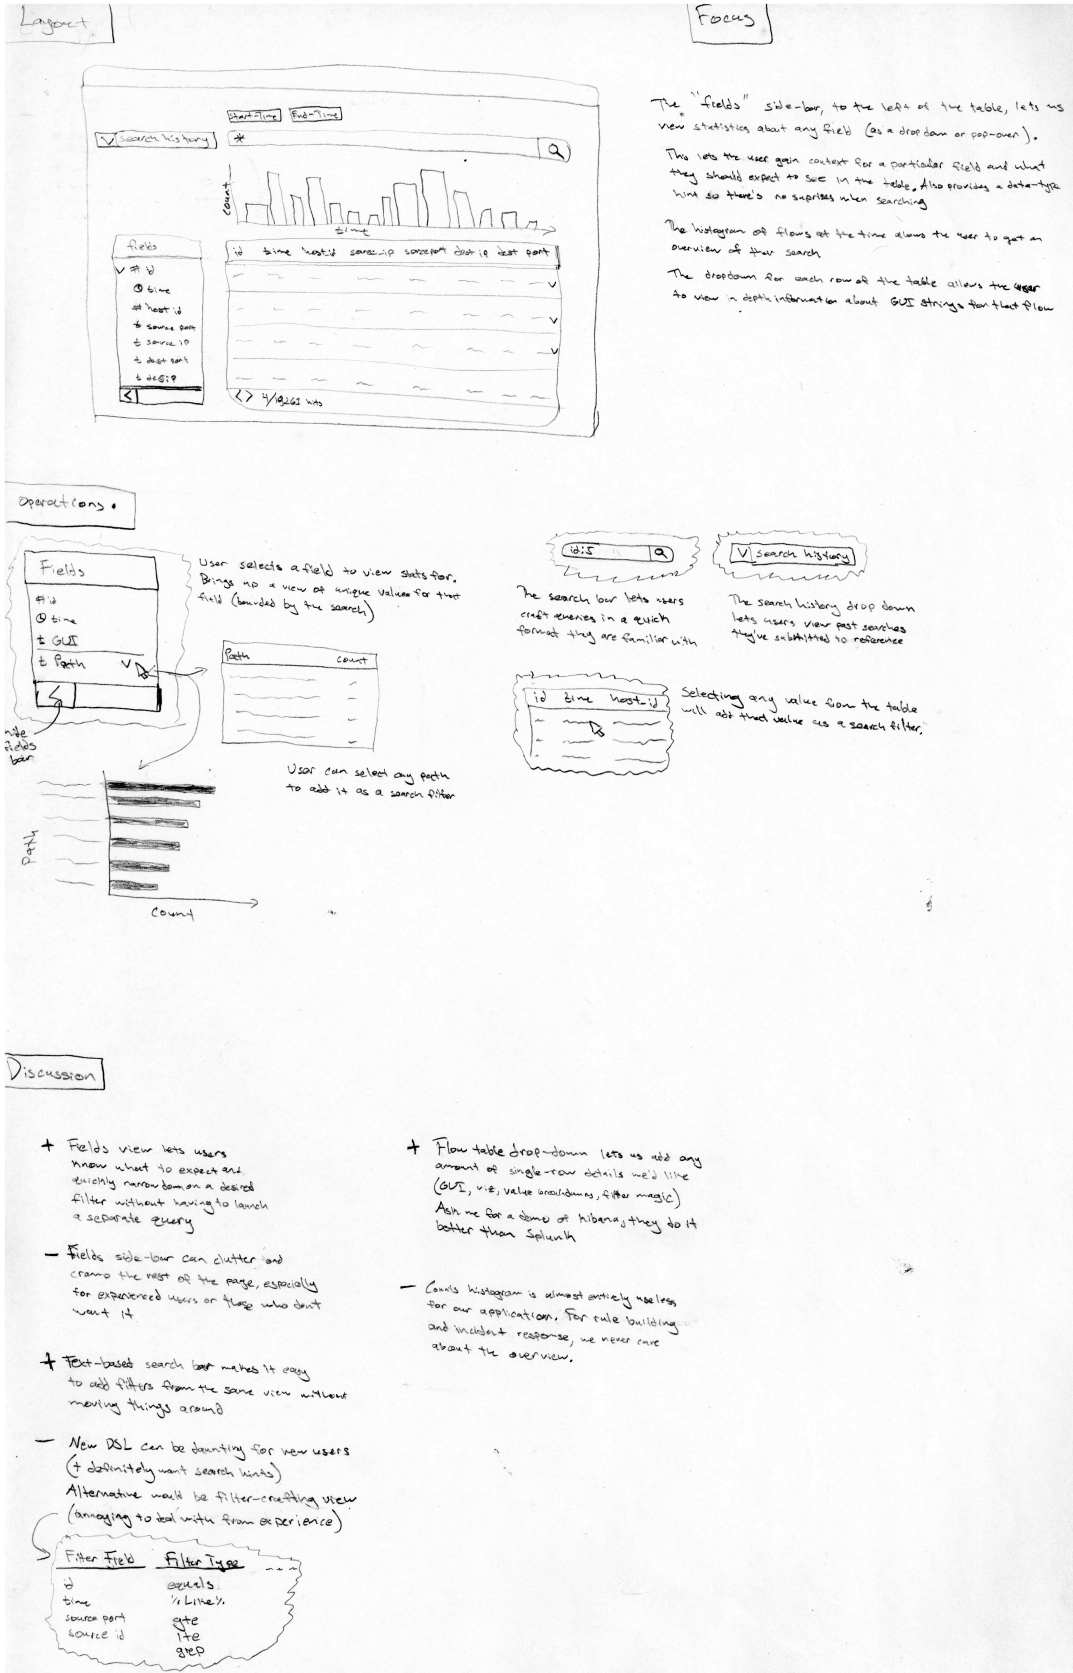 Layout
Start-Time End-Time
V search history
*
count
time
fields
# id
time
# host id
t source port
t source ip
t dest port
t dest ip
<
id time hostid source_ip source port dest ip dest port
< > 4/19,261 hits
Focus
The "fields" side-bar, to the left of the table, lets us
view statistics about any field (as a dropdown or pop-over).
This lets the user gain context for a particular field and what
they should expect to see in the table. Also provides a data-type
hint so there's no suprises when searching
The histogram of flows at the time allows the user to get an
overview of their search
The dropdown for each row of the table allows the user
to view in depth information about GUI strings for that flow
Operations
Fields
# id
time
t GUI
t Path V
<
hide
fields
bar
User selects a field to view stats for.
Brings up a view of unique values for that
field (bounded by the search)
Path count
User can select any path
to add it as a search filter
Path
Count
id:5
The search bar lets users
craft queries in a quick
format they are familiar with
V search history
The search history drop down
lets users view past searches
they've submitted to reference
id time host_id
Selecting any value from the table
will add that value as a search filter.
Discussion
+ Fields view lets users
know what to expect and
quickly narrow down on a desired
filter without having to launch
a separate query
- Fields side-bar can clutter and
cramp the rest of the page, especially
for experienced users or those who don't
want it
+ Text-based search bar makes it easy
to add filters from the same view without
moving things around
- New DSL can be daunting for new users
(+ definitely want search hints)
Alternative would be filter-crafting view
(annoying to deal with from experience)
Filter Field Filter Type ---
id equals
time %Like%
source port gte
source id lte
grep
+ Flow table drop-down lets us add any
amount of single-row details we'd like
(GUI, viz, value breakdowns, filter magic)
Ask me for a demo of kibana, they do it
better than Splunk
- Counts histogram is almost entirely useless
for our application. For rule building
and incident response, we never care
about the overview.